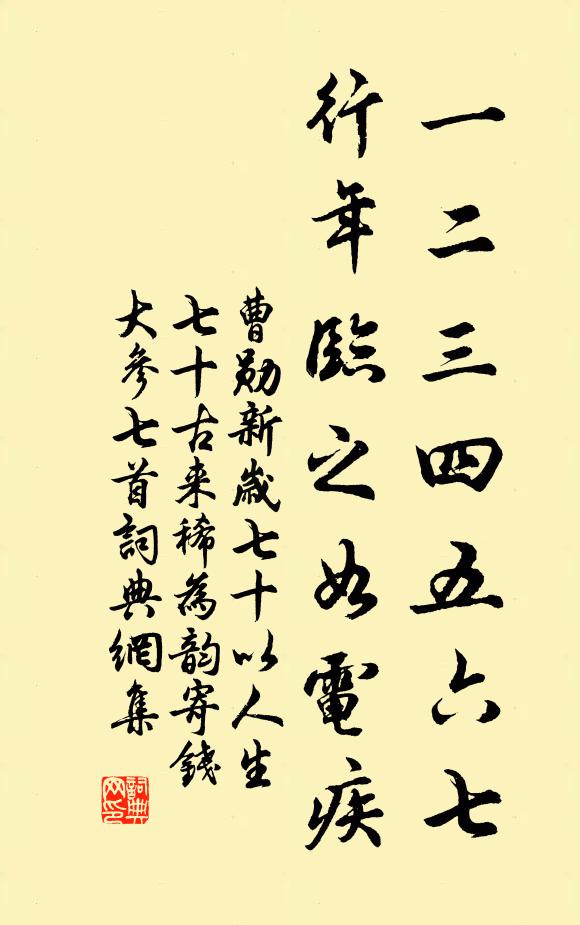 一二三四五六七
行年臨之如電疾
曹勛新歲七十以人生
七十古来稀為韵寄錢
大參七首詞典網集
詞典
网印